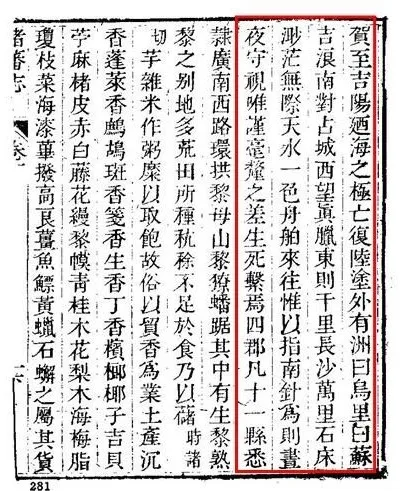 賀至吉陽廼海之極亡復陸塗外有洲曰烏里曰蘇
吉浪南對占城西望眞臘東則千里長沙萬里石床
渺茫無際天水一色舟舶來往惟以指南針爲則晝
夜守視唯謹毫釐之差生死繫焉四郡凡十一縣悉
隸廣南西路環拱黎母山黎獠蟠踞其中有生黎熟
黎之別地多荒田所種秔稌不足於食乃以藷時諸
切芋雜米作粥糜以取飽故俗以貿香爲業土產沉
香蓬萊香鷓鴣斑香箋香生香丁香檳榔椰子吉貝
苧麻楮皮赤白藤花縵黎幙青桂木花梨木海梅脂
瓊枝菜海漆蓽撥高良薑魚鰾黃蠟石蠏之屬其貨
諸蕃志 卷
281